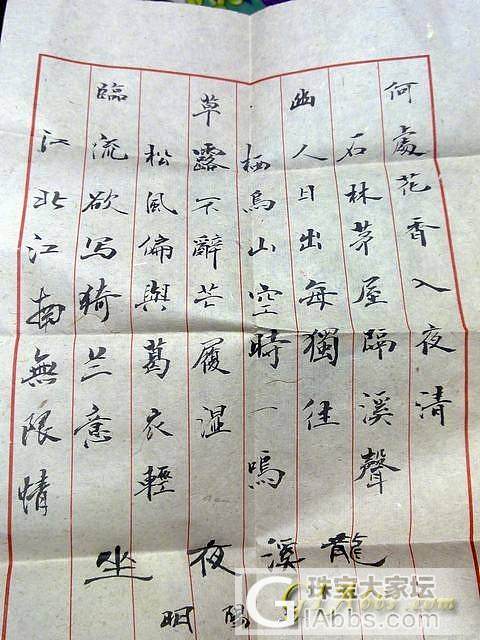 何處花香入夜清
石林茅屋隔溪聲
幽人日出每獨往
栖鳥山空時一鳴
草露不辭芒履湿
松風偏與葛衣輕
臨流欲写猗兰意
江北江南無限情
龍溪夜坐
陽明
珠宝大家坛
GIAbbs.com